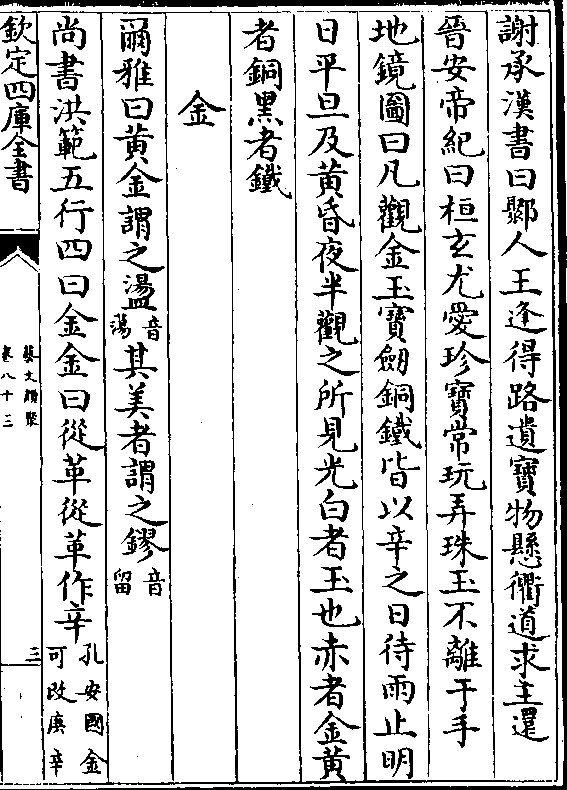 謝承漢書曰鄴人王逢得路遺寶物懸衢道求主還
晉安帝紀曰桓玄尤愛珍寶常玩弄珠玉不離于手
地鏡圖曰凡觀金玉寶劒銅鐵皆以辛之日待雨止明
日平旦及黄昏夜半觀之所見光白者玉也赤者金黄
者銅黑者鐵
金
爾雅曰黄金謂之璗音蕩其美者謂之鏐音留
尚書洪範五行四曰金金曰從革從革作辛孔安國金可改庚辛
欽定四庫全書
藝文類聚
卷八十三
三